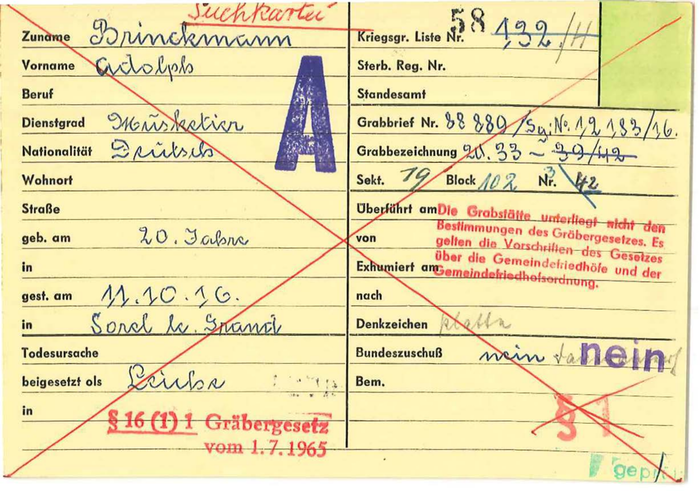 Suchkartei
Zuname Brinckmann
Vorname Adolph
Beruf
Dienstgrad Musketier
Nationalität Deutsch
Wohnort
Straße
geb. am 20. Jahre
in
gest. am 11.10.16.
in
Todesursache
beigesetzt als Leiche
in
§ 16 (1) 1 Gräbergesetz
vom 1.7.1965
A
58
Kriegsgr. Liste Nr. 132/4
Sterb. Reg. Nr.
Standesamt
Grabbrief Nr. 88 880/Sg. No. 12 183/16.
Grabbezeichnung 20. 33 – 39/42
Sekt. 19 Block 102 Nr. 3 42
Überführt am
von
Exhumiert am
nach
Die Grabstätte unterliegt nicht den
Bestimmungen des Gräbergesetzes. Es
gelten die Vorschriften des Gesetzes
über die Gemeindefriedhöfe und der
Gemeindefriedhofsordnung.
Denkzeichen platte
Bundeszuschuß nein nein
Bem.
§ 1